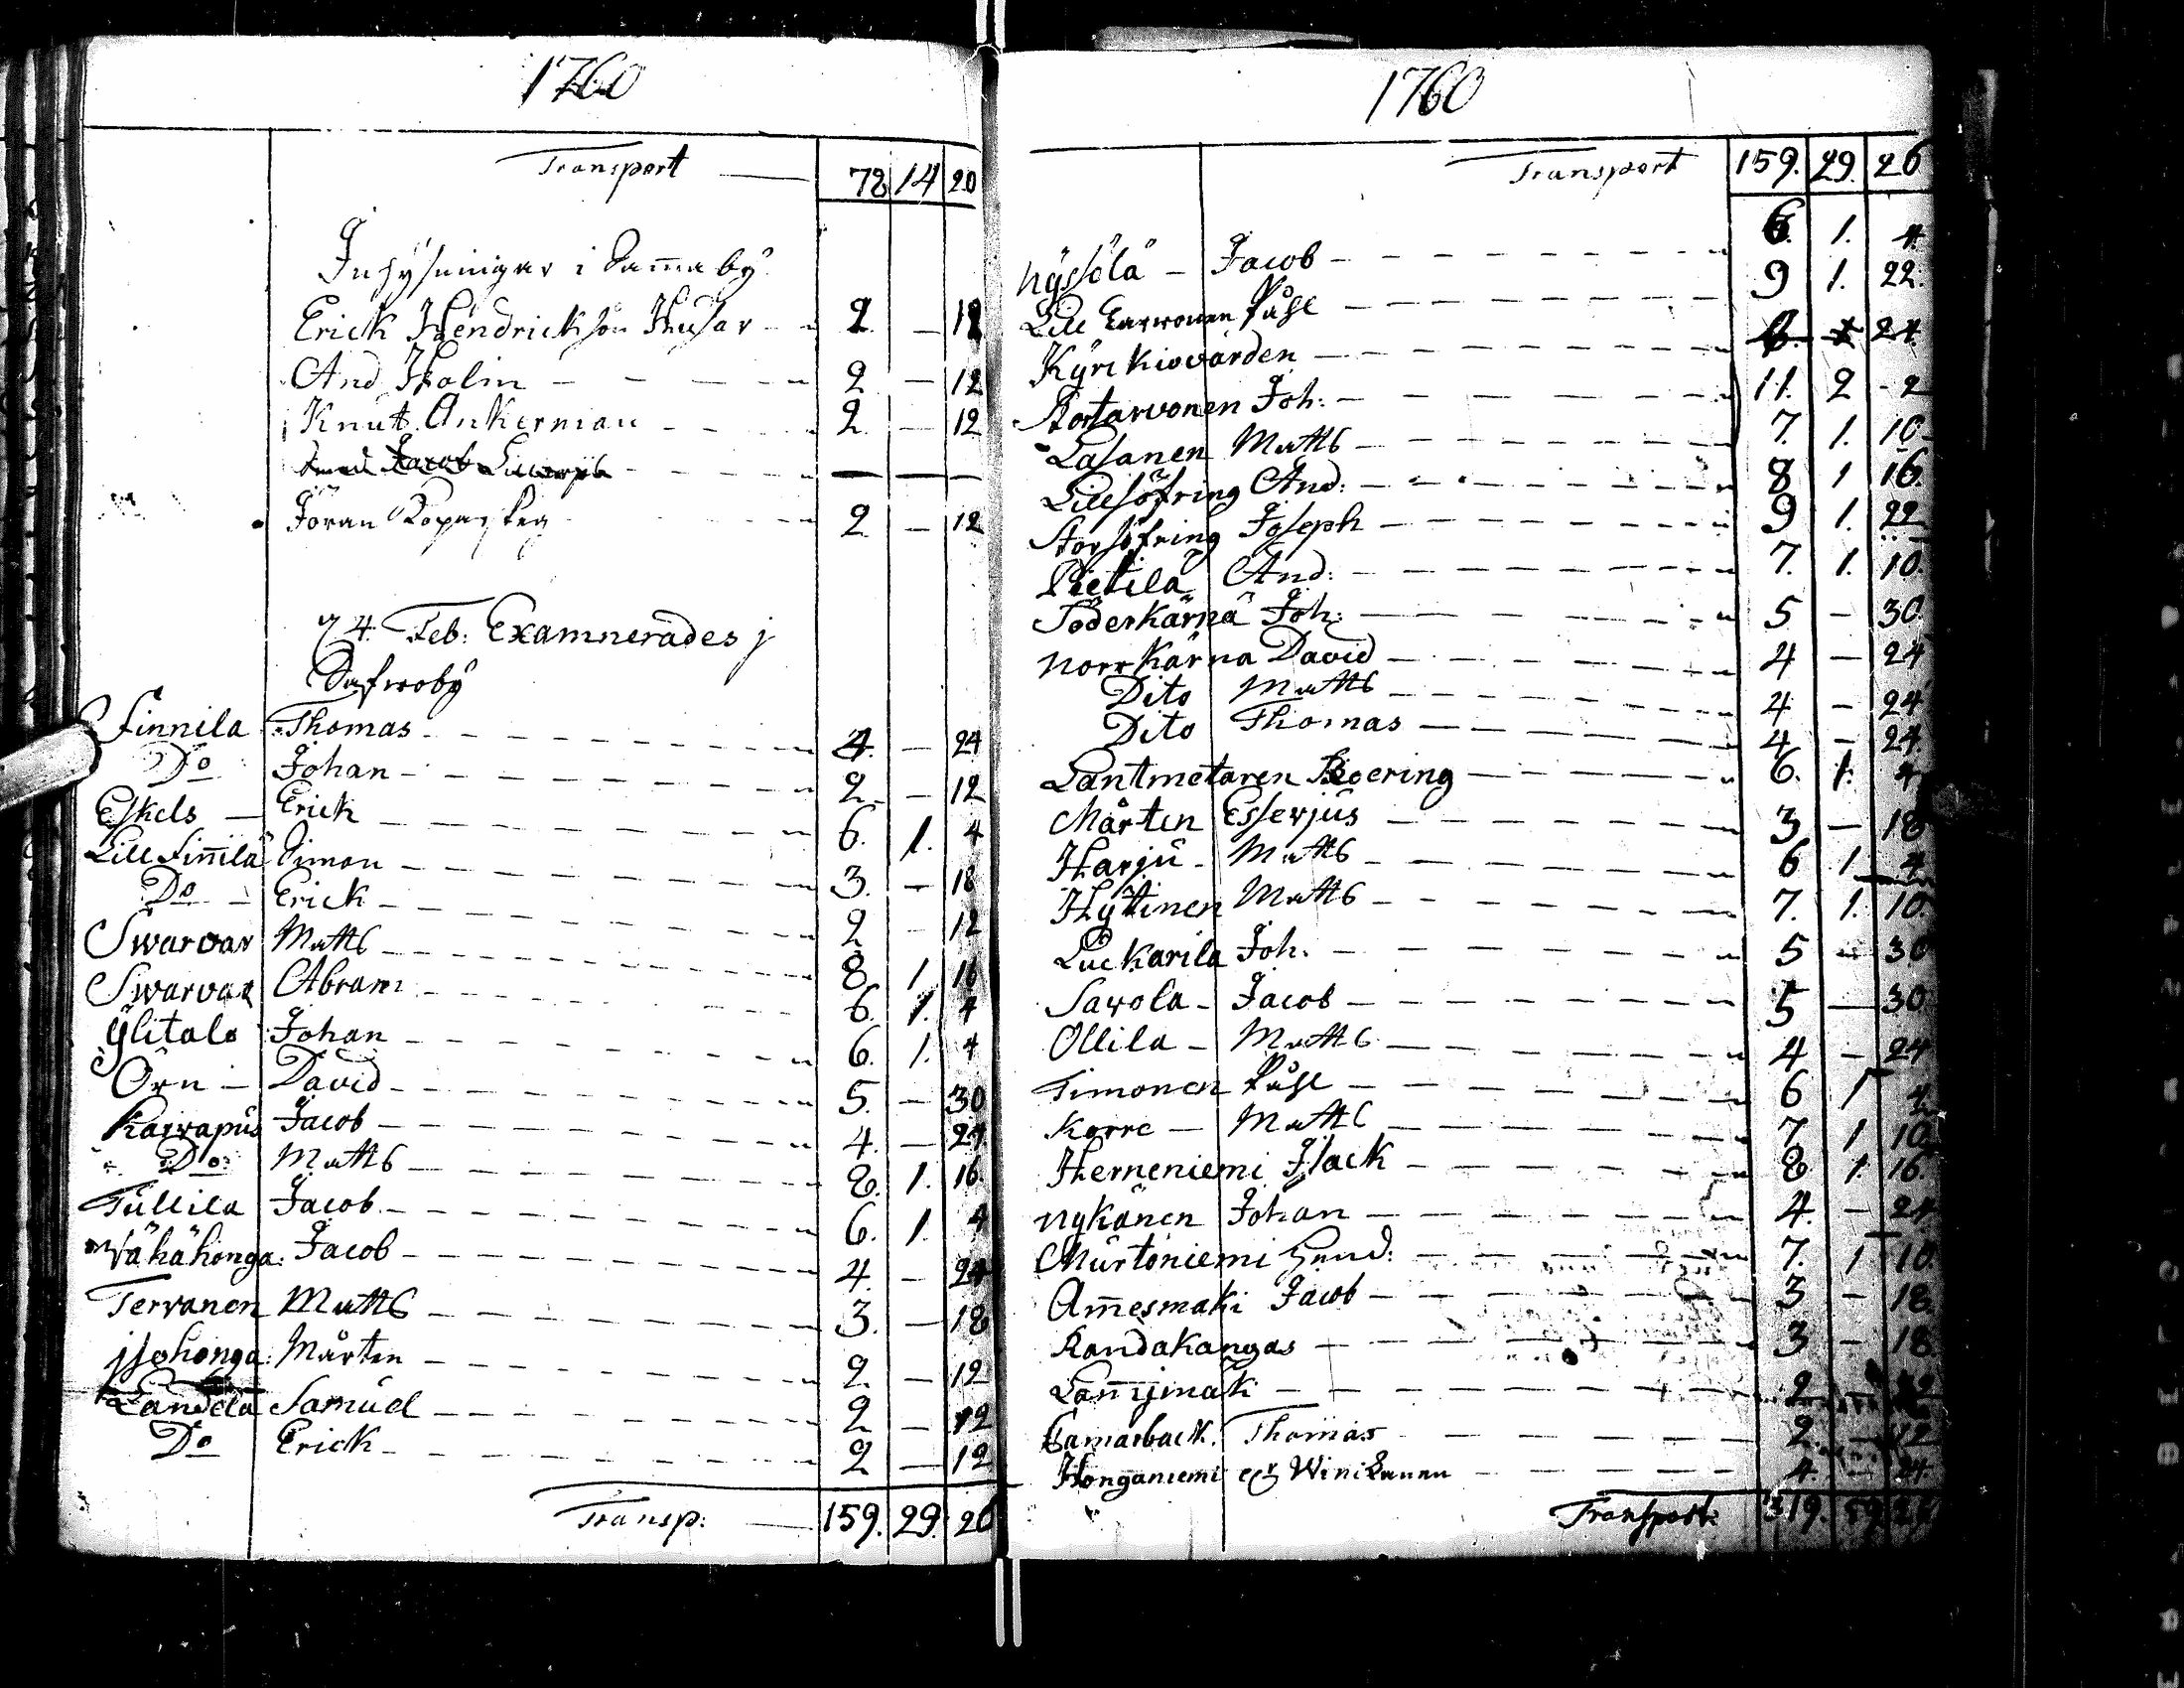 1760
Transport 78 14 20
Inhysningar i Samma by
Erick Hendrickson Husar 2 — 12
And Holm 2 — 12
Knut Ankerman 2 — 12
Smed Jacob — — —
Jöran 2 — 12
24 Feb: Examnerades j
Safwoby
Finnila Thomas 4. — 24
Do Johan 2 — 12
Eskels Erick 6. 1. 4
Lill Finnilä Simon 3. — 18
Do Erick 2 — 12
Swarvar Matts 8 1 16
Swarvar Abram 6. 1. 4
Ÿlitalo Johan 6. 1. 4
Örn David 5. — 30
Karvapus Jacob 4. — 24
Do: Matts 8. 1. 16
Tullila Jacob 6. 1. 4
Wähähonga: Jacob 4. — 24
Tervanen Matts 3. — 18
jsohonga: Mårten 2 — 12
Landela Samuel 2 — 12
Do Erick 2 — 12
Transp: 159. 29. 26
1760
Transport 159. 29. 26
Nyssölä Jacob 6. 1. 4
Lill Tarwonen Påhl 9 1. 22
Kyrkiovärden 24
Stortarvonen Joh: 11. 2 2
Lasanen Matts 7. 1. 10
Lillsöfring And: 8 1 16.
Storsöfring Joseph 9 1. 22
Pietilä And: 7. 1. 10.
Söderkärnä Joh: 5 — 30.
Norrkärna David 4 — 24
Dito Matts 4 — 24
Dito Thomas 4 — 24
Lantmetaren Boering 6. 1. 4
Mårten Esserjus 3 — 18
Harju Matts 6 1 4
Hytinen Matts 7. 1. 10.
Luckarila Joh. 5 — 30
Savola Jacob 5 — 30
Ollila Matts 4 — 24
Timonen Påhl 6 1 4
Korre Matts 7 1 10
Herneniemi Isack 8 1. 16.
Nykänen Johan 4. — 24
Murtoniemi Hend: 7. 1 10.
Am̄esmäki Jacob 3 — 18.
Randakangas 3 — 18.
2 — 12
Thomas 2. — 12
Honganiemi 4. — 24
Transport: 319.